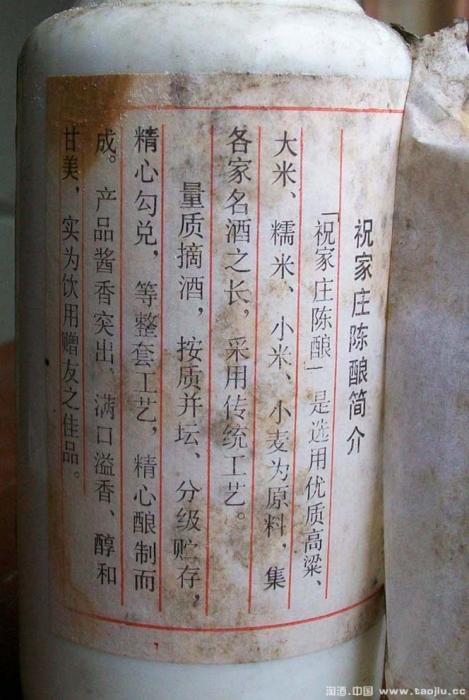 祝家庄陈酿简介
「祝家庄陈酿」是选用优质高粱、
大米、糯米、小米、小麦为原料，集
各家名酒之长，采用传统工艺。
量质摘酒，按质并坛、分级贮存，
精心勾兑，等整套工艺，精心酿制而
成。产品酱香突出、满口溢香、醇和
甘美，实为饮用赠友之佳品。
淘酒.中国 www.taojiu.cc